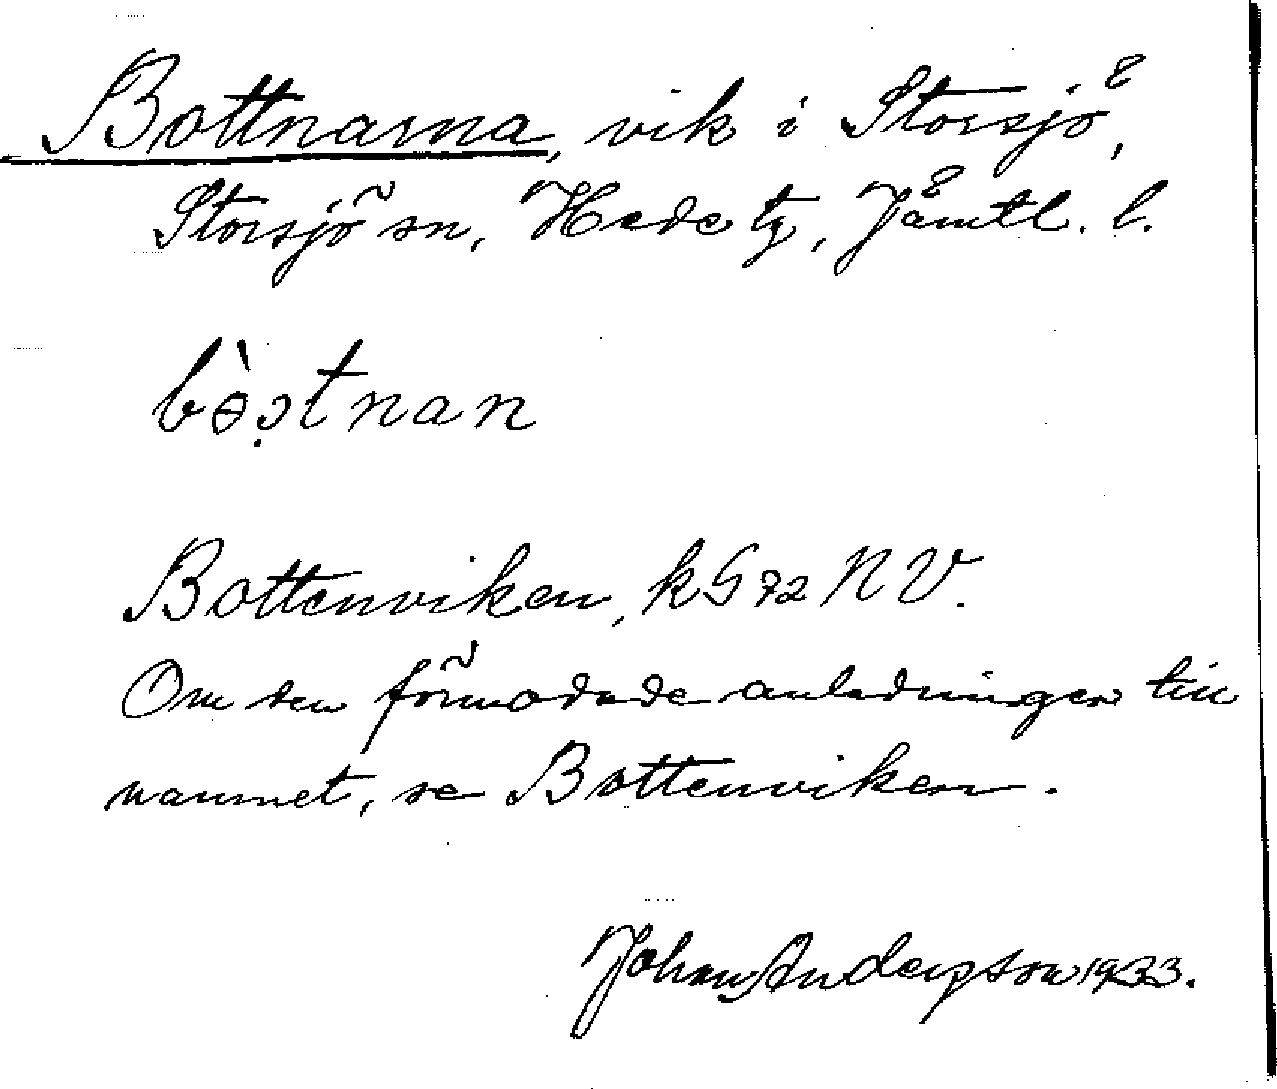 Bottnarna, vik i Storsjö,
Storsjö sn, Hede tg, Jämtl. l.
bɵ̀ɔ̣tnan
Bottenviken, k G 72 N V.
Om den förmodade anledningen till
namnet, se Bottenviken.
Johan Anderzson 1933.